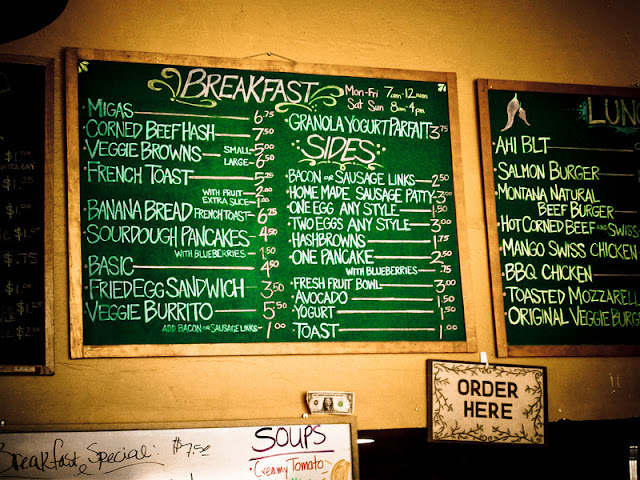 BREAKFAST
Mon-Fri 7am-12noon
Sat Sun 8am-4pm
MIGAS 6.75
CORNED BEEF HASH 7.50
VEGGIE BROWNS SMALL 5.00
LARGE 6.50
FRENCH TOAST 5.25
WITH FRUIT 2.00
EXTRA SLICE 1.00
BANANA BREAD FRENCH TOAST 6.25
SOURDOUGH PANCAKES 4.50
WITH BLUEBERRIES 1.50
BASIC 4.50
FRIED EGG SANDWICH 3.50
VEGGIE BURRITO 5.50
ADD BACON OR SAUSAGE LINKS 1.00
GRANOLA YOGURT PARFAIT 3.75
SIDES
BACON OR SAUSAGE LINKS 2.50
HOME MADE SAUSAGE PATTY 3.00
ONE EGG ANY STYLE 1.50
TWO EGGS ANY STYLE 3.00
HASHBROWNS 1.75
ONE PANCAKE 2.50
WITH BLUEBERRIES .75
FRESH FRUIT BOWL 3.00
AVOCADO 1.50
YOGURT 1.50
TOAST 1.00
LUN
AHI BLT
SALMON BURGER
MONTANA NATURAL
BEEF BURGER
HOT CORNED BEEF AND SWISS
MANGO SWISS CHICKEN
BBQ CHICKEN
TOASTED MOZZARELL
ORIGINAL VEGGIE BURG
ORDER
HERE
Breakfast Special: $7.50
SOUPS
Creamy Tomato